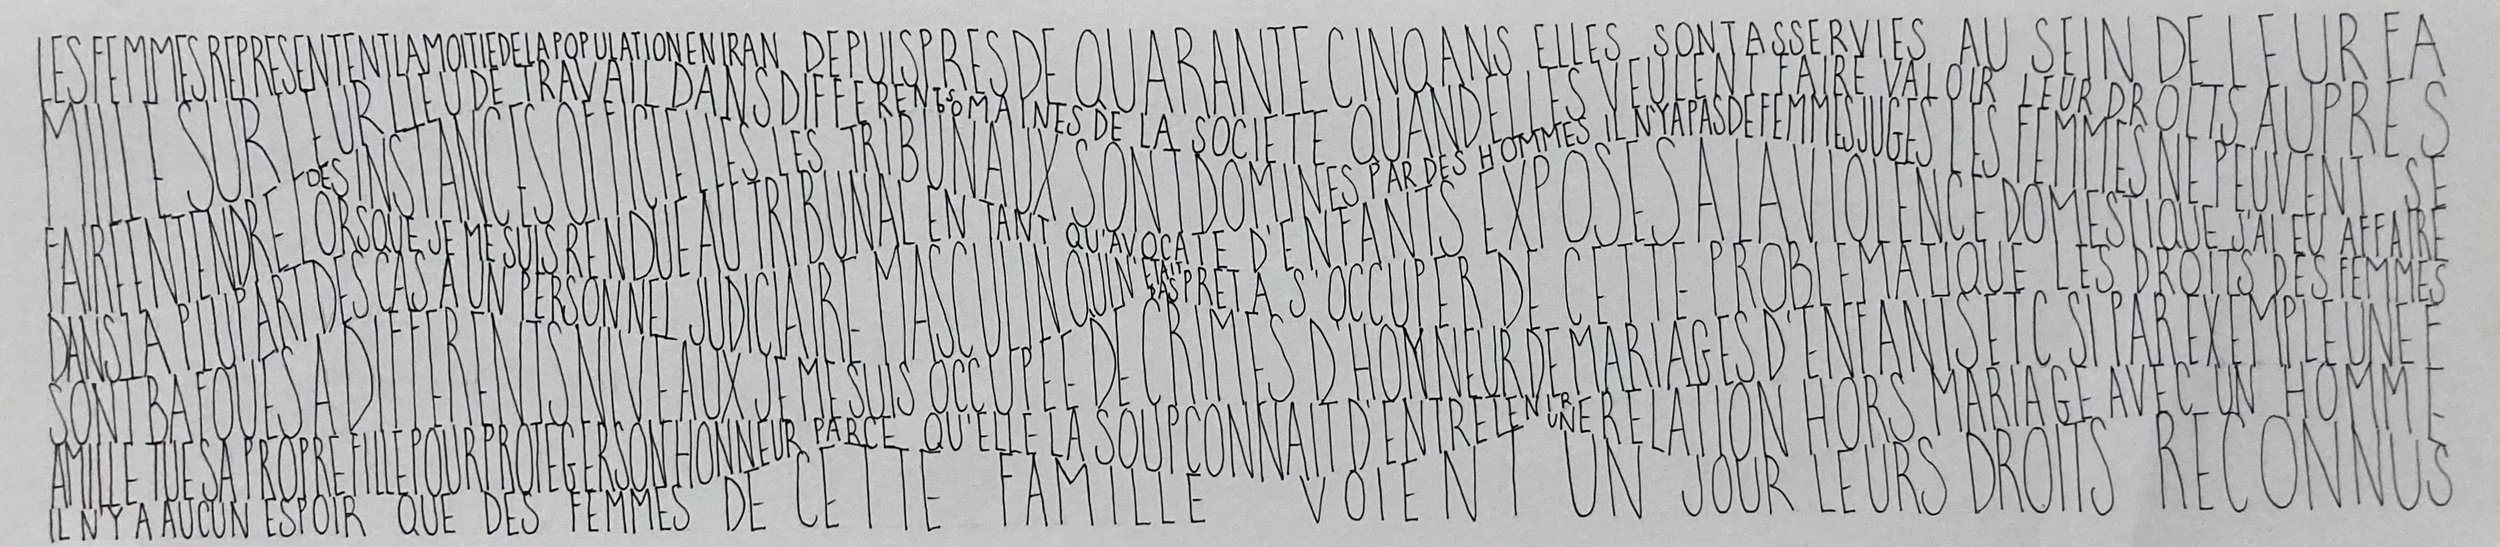 LES FEMMES REPRESENTENT LA MOITIE DE LA POPULATION EN IRAN DEPUIS PRES DE QUARANTE CINQ ANS ELLES SONT ASSERVIES AU SEIN DE LEUR FA
MILLE SUR LEUR LIEU DE TRAVAIL DANS DIFFERENTS DOMAINES DE LA SOCIETE QUAND ELLES VEULENT FAIRE VALOIR LEUR DROITS AUPRES
DES INSTANCES OFFICIELLES LES TRIBUNAUX SONT DOMINES PAR DES HOMMES IL N Y A PAS DE FEMMES JUGES LES FEMMES NE PEUVENT SE
FAIRE ENTENDRE LORSQUE JE ME SUIS RENDUE AU TRIBUNAL EN TANT QU'AVOCATE D'ENFANTS EXPOSES A LA VIOLENCE DOMESTIQUE J'AI EU AFFAIRE
DANS LA PLUPART DES CAS A UN PERSONNEL JUDICIAIRE MASCULIN QUI N'ETAIT PAS PRET A S'OCCUPER DE CETTE PROBLEMATIQUE LES DROITS DES FEMMES
SONT BAFOUES A DIFFERENTS NIVEAUX JE ME SUIS OCCUPEE DE CRIMES D'HONNEUR DE MARIAGES D'ENFANTS ETC SI PAR EXEMPLE UNE F
AMILLE TUE SA PROPRE FILLE POUR PROTEGER SON HONNEUR PARCE QU'ELLE LA SOUPCONNAIT D'ENTRETENIR UNE RELATION HORS MARIAGE AVEC UN HOMME
IL N'Y A AUCUN ESPOIR QUE DES FEMMES DE CETTE FAMILLE VOIENT UN JOUR LEURS DROITS RECONNUS